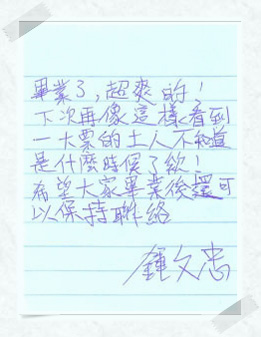 畢業了,超爽的!
下次再像這樣看到
一大票的土人不知道
是什麼時候了欸!
希望大家畢業後還可
以保持聯絡
鍾文忠